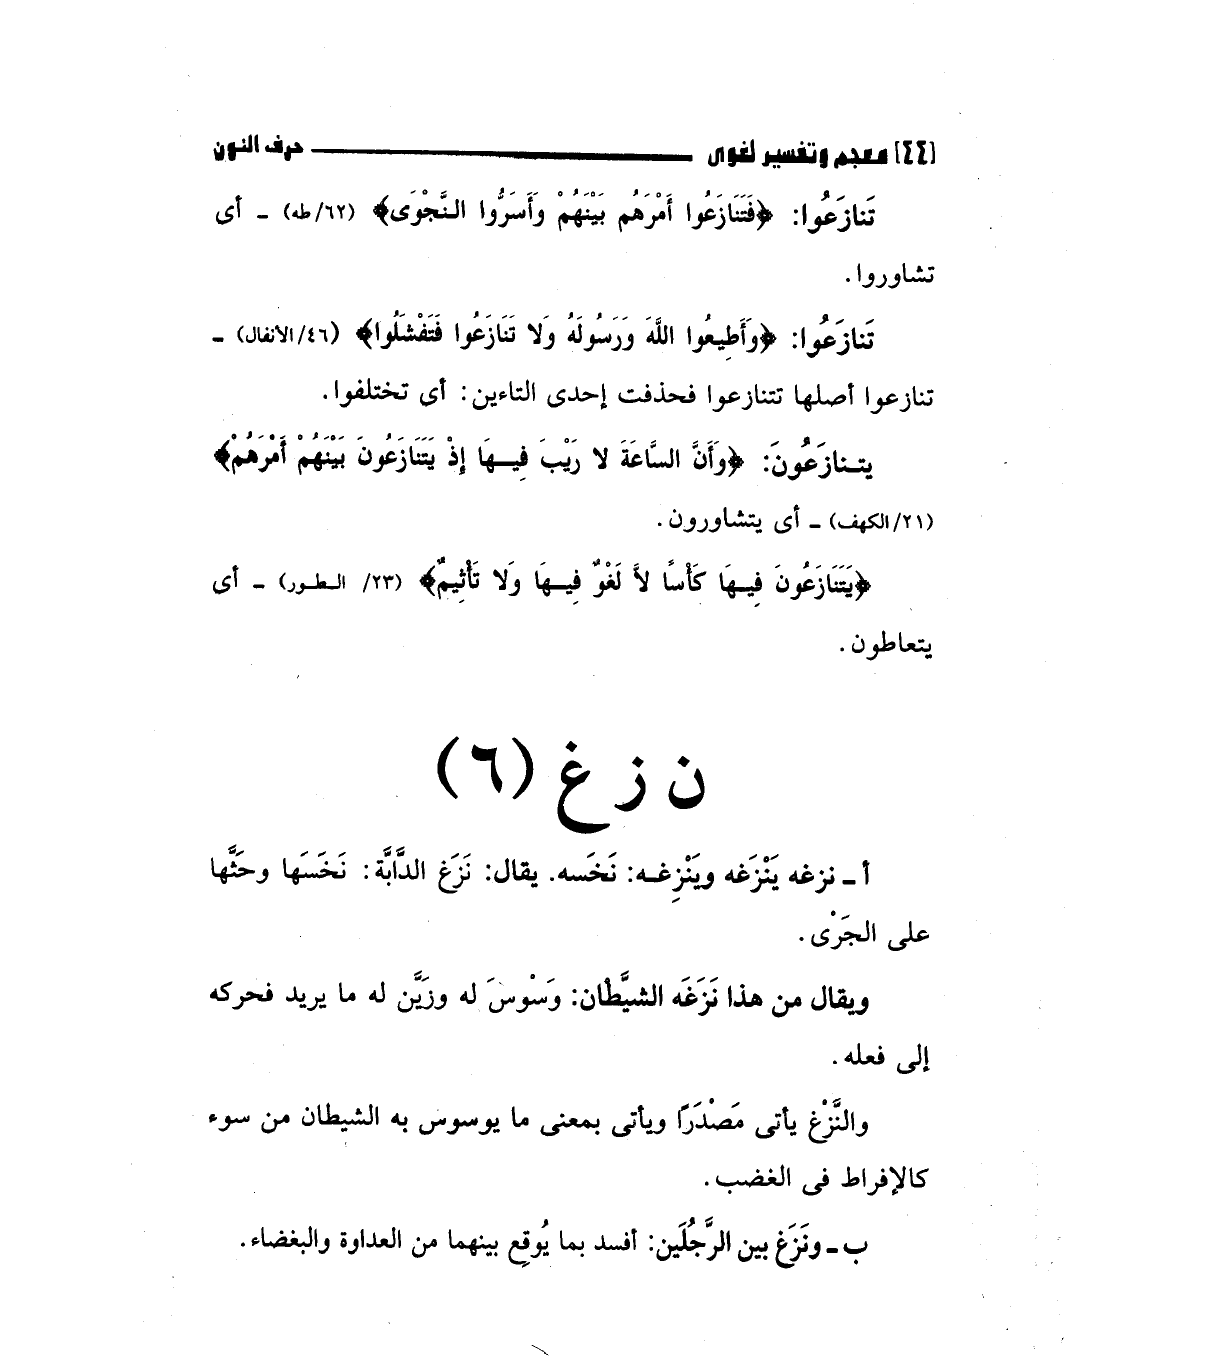 [٤٤] معجم وتفسير لغوى ــــــ حرف النون
تَنازَعُوا: ﴿فَتَنَازَعُوا أَمْرَهُم بَيْنَهُمْ وَأَسَرُّوا النَّجْوَى﴾ (٦٢/طه) ـ أى
تشاوروا.
تَنازَعُوا: ﴿وَأَطِيعُوا اللَّهَ وَرَسُولَهُ وَلا تَنَازَعُوا فَتَفْشَلُوا﴾ (٤٦/الأنفال) ـ
تنازعوا أصلها تتنازعوا فحذفت إحدى التاءين: أى تختلفوا.
يتـنازَعُونَ: ﴿وَأَنَّ السَّاعَةَ لا رَيْبَ فِيـهَا إِذْ يَتَنَازَعُونَ بَيْنَهُمْ أَمْرَهُمْ﴾
(٢١/الكهف) ـ أى يتشاورون.
﴿يَتَنَازَعُونَ فِيـهَا كَأْسًا لاَّ لَغْوٌ فِيـهَا وَلا تَأْثِيمٌ﴾ (٢٣/ الـطـور) ـ أى
يتعاطون.
ن ز غ (٦)
أ ـ نزغه يَنْزَغه ويَنْزِغـه: نَخَسه. يقال: نَزَغ الدَّابَّة: نَخَسَها وحَثَّها
على الجَرْى.
ويقال من هذا نَزَغَه الشيَّطْان: وَسْوسَ له وزيَّن له ما يريد فحركه
إلى فعله.
والنَّزْغ يأتى مَصْدَرًا ويأتى بمعنى ما يوسوس به الشيطان من سوء
كالإفراط فى الغضب.
ب ـ ونَزَغ بين الرَّجُلَين: أفسد بما يُوقِع بينهما من العداوة والبغضاء.